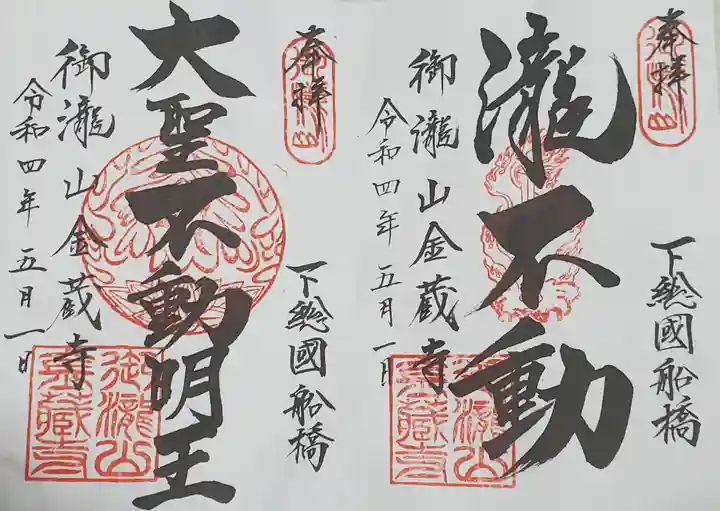 奉拝
下總國船橋
瀧不動
御瀧山金蔵寺
令和四年五月一日
奉拝
下總國船橋
大聖不動明王
御瀧山金蔵寺
令和四年五月一日
御瀧山
金蔵寺
御瀧山
金蔵寺